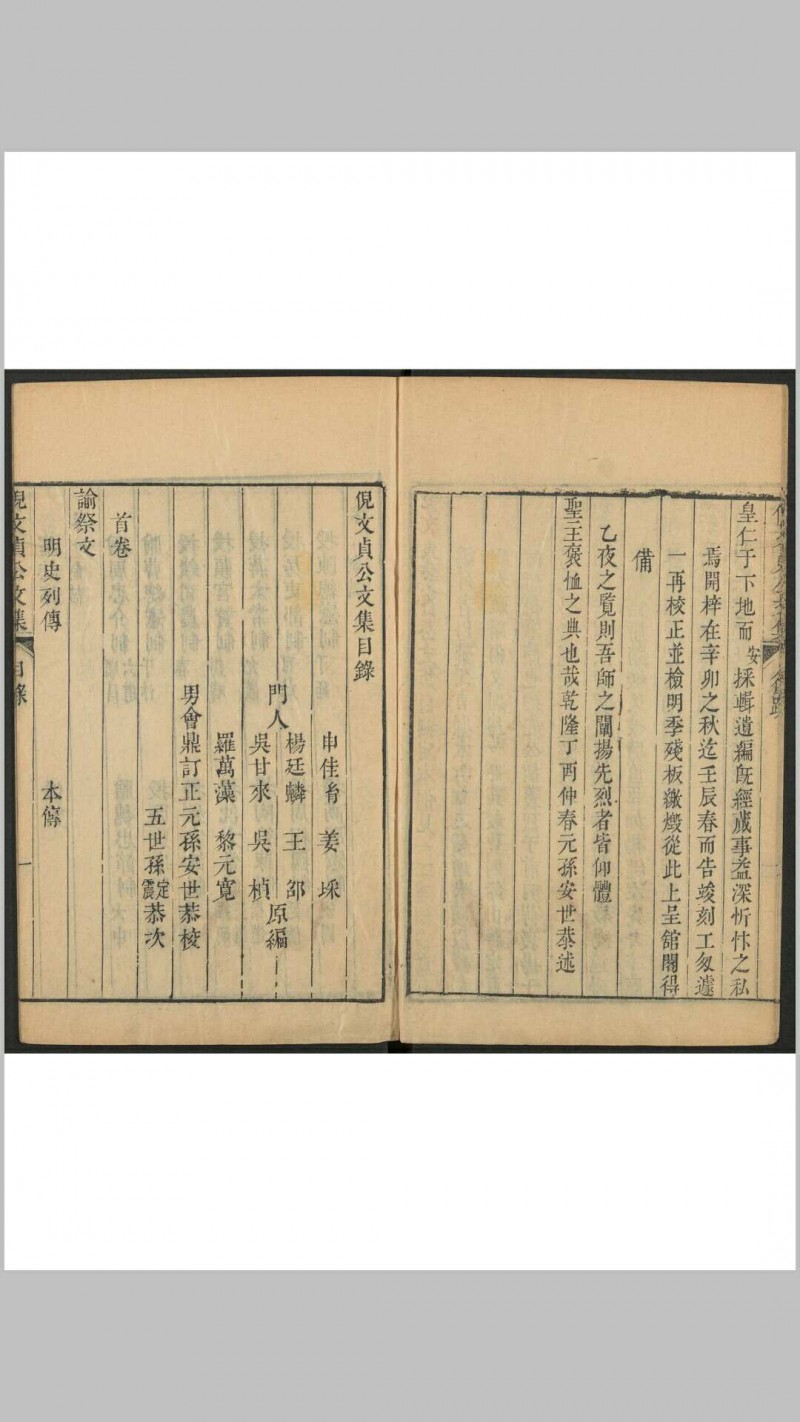 皇仁于下地而安採輯遺編旣經蕆事益深忻忭之私
焉開梓在辛卯之秋迄壬辰春而告竣刻工匆遽
一再校正並檢明季殘板繳燬從此上呈舘閣得
備
乙夜之覽則吾師之闡揚先烈者皆仰體
聖王褒恤之典也哉乾隆丁酉仲春元孫安世恭述
倪文貞公文集目錄
申佳胤 姜埰
門人 楊廷麟 王邵 原編
吳甘來 吳楨
羅萬藻 黎元寬
男會鼎訂正元孫安世恭校
五世孫震定恭次
首卷
諭祭文
明史列傳 本傳
倪文貞公文集 目錄 一